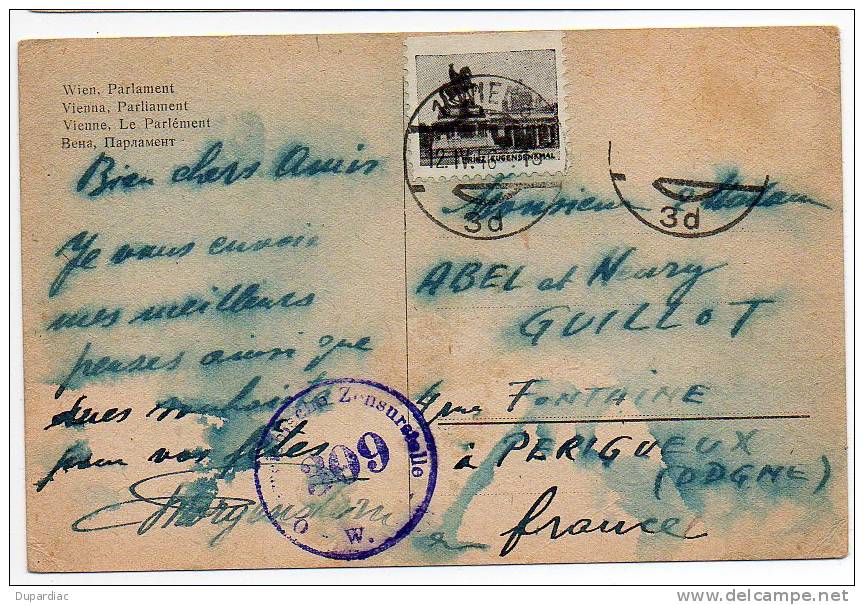 Wien, Parlament
Vienna, Parliament
Vienne, Le Parlément
Вена, Парламент
Bien chers Amis
Je vous envoie
mes meilleurs
penses ainsi que
pour vos fêtes
Morgenstern
WIEN
12.IV.
3d
PRINZ EUGENDENKMAL
3d
Zensurstelle
209
O W.
Monsieur Madam
ABEL et Henry
GUILLOT
4 rue FONTAINE
à PERIGUEUX
(DDGNE)
en france
Dupardiac
www.delcampe.net